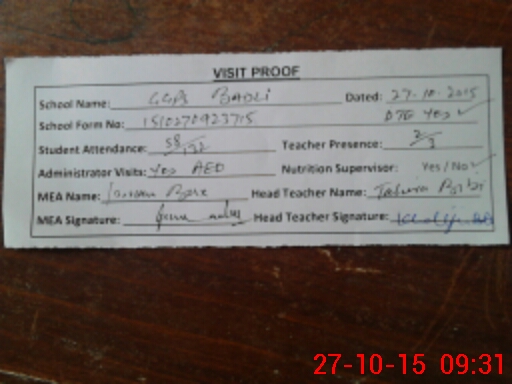 VISIT PROOF
School Name: GGPS BADLI Dated: 27-10-2015
School Form No: 151027092375 DTE Yes ✓
Student Attendance: 58/132 Teacher Presence: 2/3
Administrator Visits: Yes AEO Nutrition Supervisor: Yes / No ✓
MEA Name: Head Teacher Name: Tahira Bibi
MEA Signature: Head Teacher Signature:
27-10-15 09:31